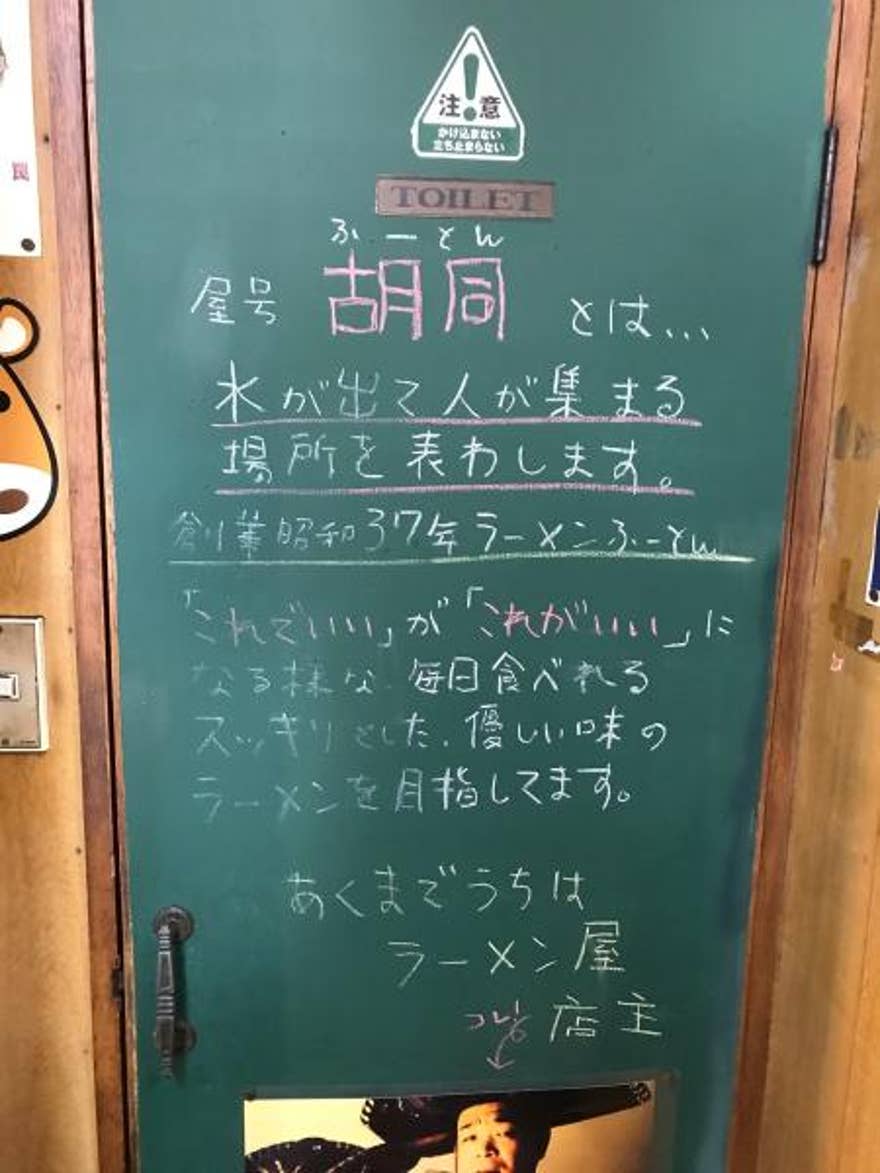 注意
かけ込まない
立ち止まらない
TOILET
ふーとん
屋号 胡同 とは...
水が出て人が集まる
場所を表わします。
創業昭和37年ラーメンふーとん
「これでいい」が「これがいい」に
なる様な 毎日食べれる
スッキリとした、優しい味の
ラーメンを目指してます。
あくまでうちは
ラーメン屋
店主